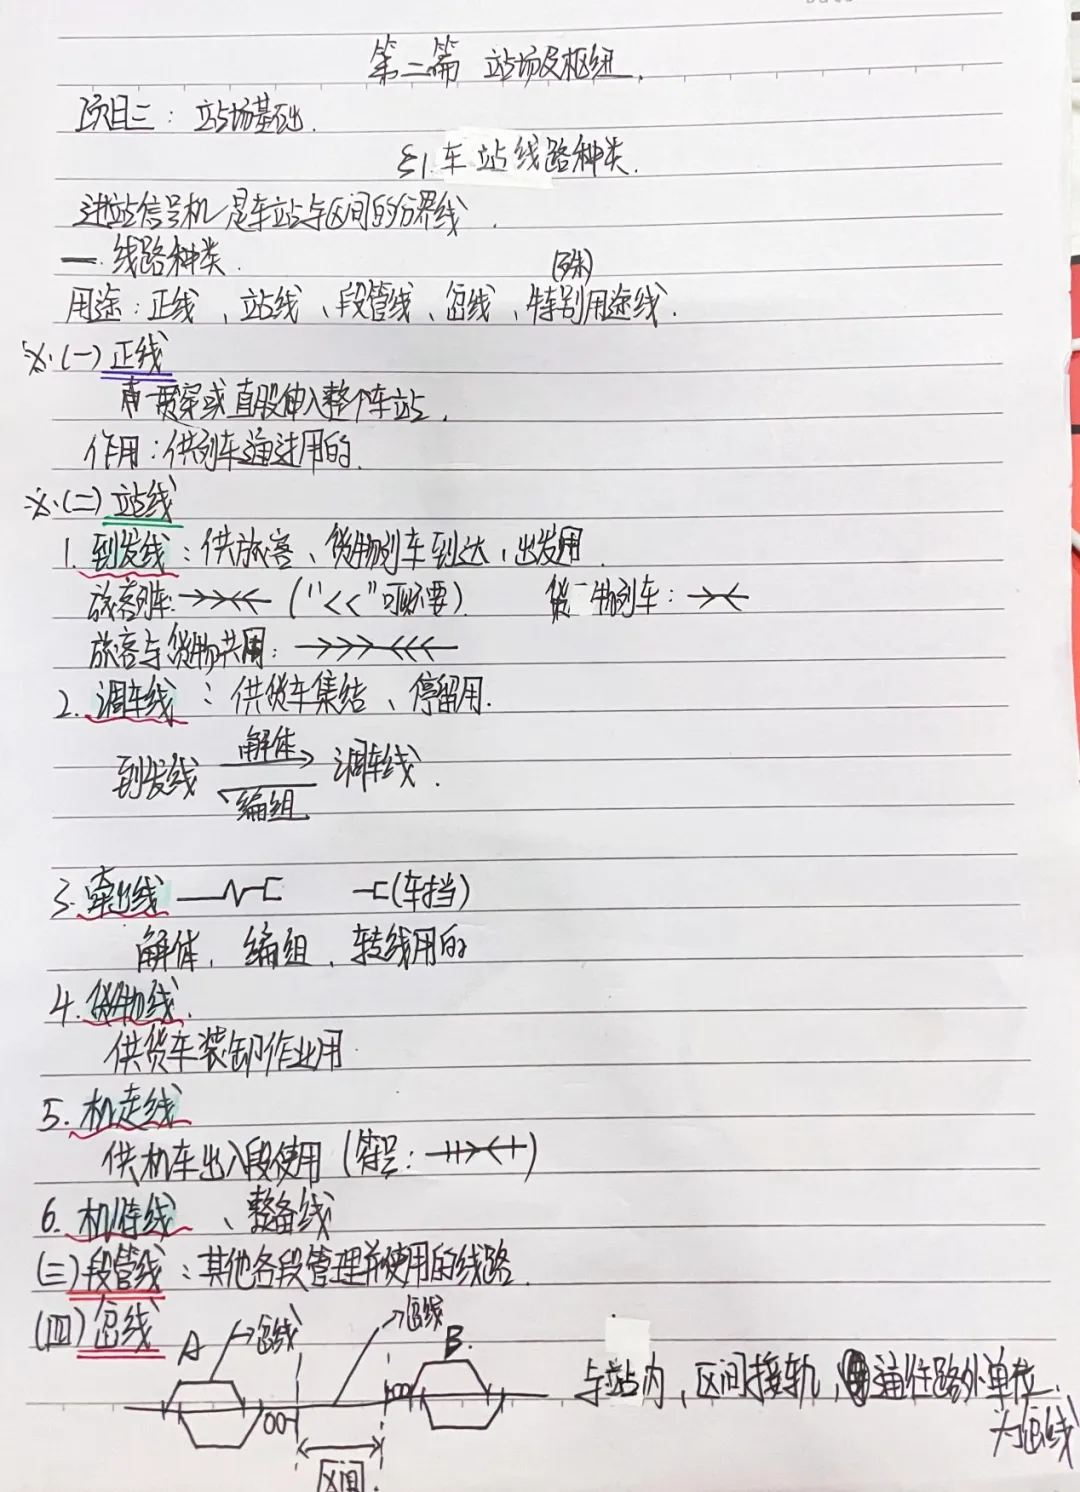 第二篇 站场及枢纽.
项目三：站场基础.
§1.车站线路种类.
进站信号机是车站与区间的分界线.
一.线路种类.
(殊)
用途：正线、站线、段管线、岔线、特别用途线.
※.(一)正线
贯穿或直股伸入整个车站.
作用：供列车通过用的.
※.(二)站线
1.到发线：供旅客、货物列车到达、出发用
旅客列车: (“<<”可不要). 货物列车：
旅客与货物共用：
2.调车线：供货车集结、停留用.
解体
到发线 调车线.
编组.
3.牵出线 (车挡)
解体、编组、转线用的
4.货物线.
供货车装卸作业用.
5.机走线
供机车出入段使用(符号：)
6.机待线、整备线
(三)段管线：其他各段管理并使用的线路.
(四)岔线 A 岔线 岔线 B.
与站内、区间接轨，通往路外单位.
为岔线
区间.